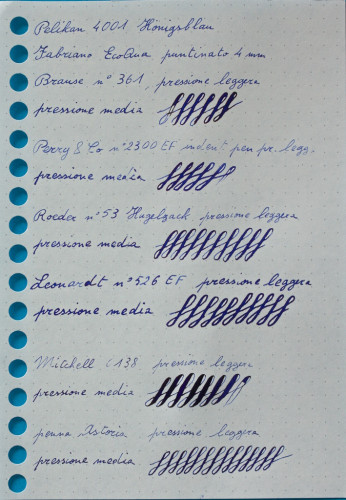 Pelikan 4001 Königsblau
Fabriano EcoQua puntinato 4 mm
Brause n° 361, pressione leggera
pressione media
Perry & Co n° 2300 EF indent pen pr. legg.
pressione media
Roeder n° 53 pressione leggera
pressione media
Leonardt n° 526 EF pressione leggera
pressione media
Mitchell 0138 pressione leggera
pressione media
penna Astoria pressione leggera
pressione media